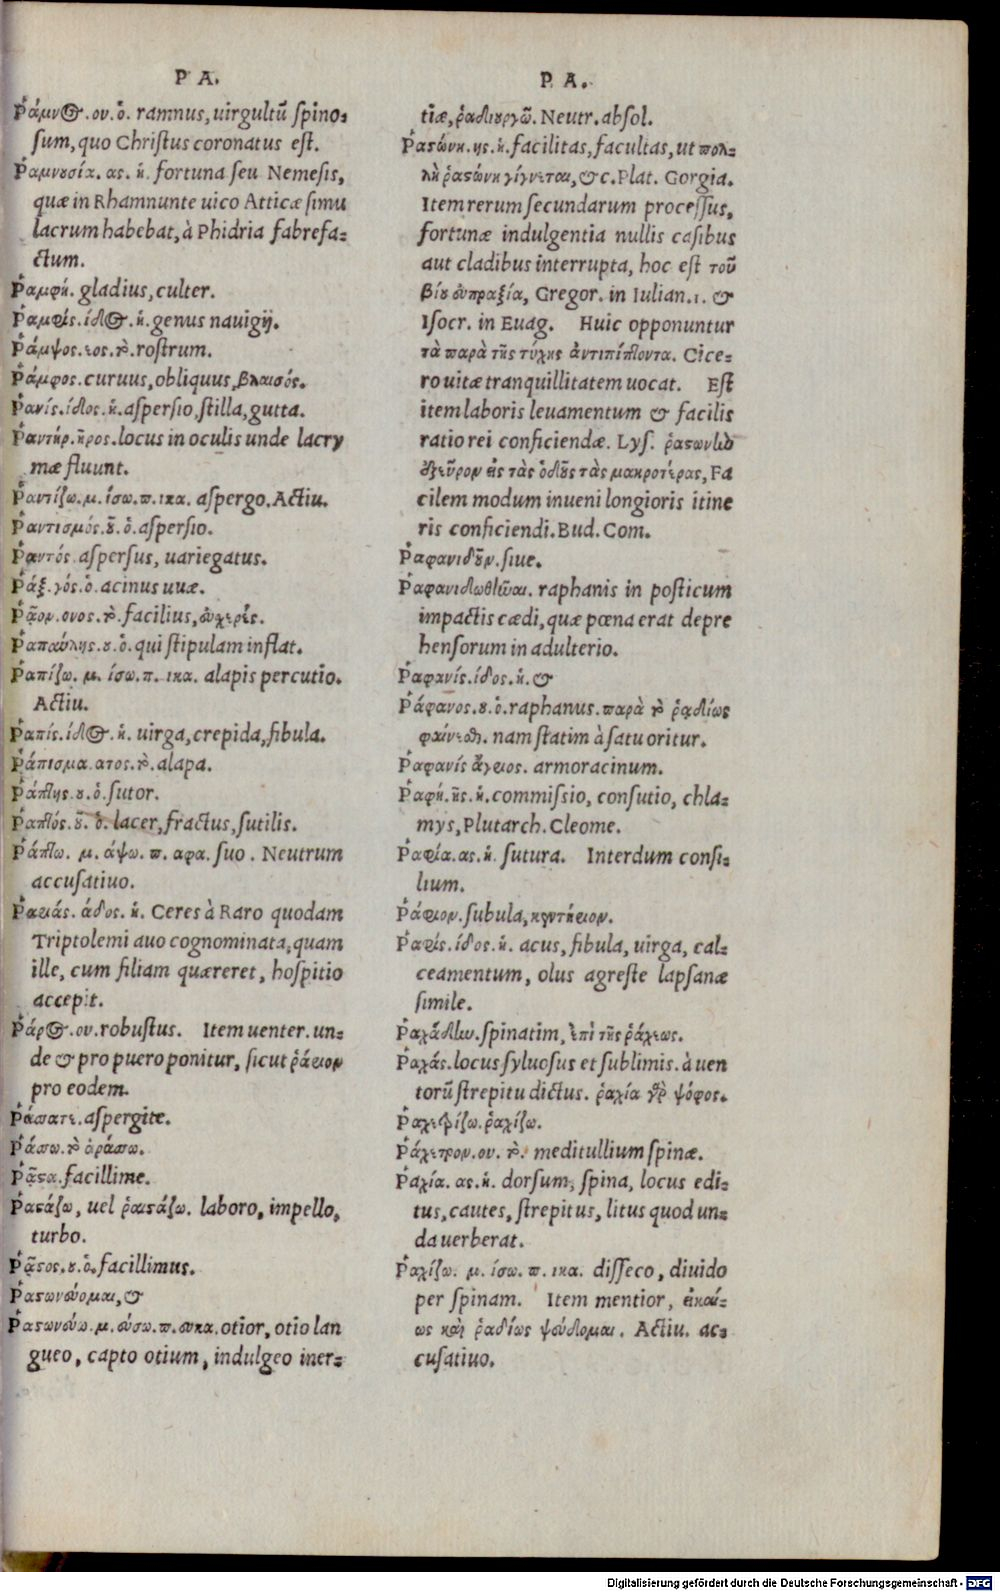 Ρ Α.
Ῥάμνος. ου. ὁ. ramnus, uirgultũ spino-
sum, quo Christus coronatus est.
Ῥαμνουσία. ας. ἡ. fortuna seu Nemesis,
quæ in Rhamnunte uico Atticæ simu
lacrum habebat, à Phidria fabrefa-
ctum.
Ῥαμφή. gladius, culter.
Ῥαμφίς. ίδος. ἡ. genus nauigij.
Ῥάμψος. εος. τὸ. rostrum.
Ῥάμφος. curuus, obliquus, βλαισός.
Ῥανίς. ίδος. ἡ. aspersio, stilla, gutta.
Ῥαντήρ. ῆρος. locus in oculis unde lacry
mæ fluunt.
Ῥαντίζω. μ. ίσω. π. ικα. aspergo. Actiu.
Ῥαντισμός. οῦ. ὁ. aspersio.
Ῥαντός. aspersus, uariegatus.
Ῥάξ. γός. ὁ. acinus uuæ.
Ῥᾷον. ονος. τὸ. facilius, εὐχερές.
Ῥαπαύλης. ου. ὁ. qui stipulam inflat.
Ῥαπίζω. μ. ίσω. π. ικα. alapis percutio.
Actiu.
Ῥαπίς. ίδος. ἡ. uirga, crepida, fibula.
Ῥάπισμα. ατος. τὸ. alapa.
Ῥάπτης. ου. ὁ. sutor.
Ῥαπτός. οῦ. ὁ. lacer, fractus, sutilis.
Ῥάπτω. μ. άψω. π. αφα. suo. Neutrum
accusatiuo.
Ῥαριάς. άδος. ἡ. Ceres à Raro quodam
Triptolemi auo cognominata, quam
ille, cum filiam quæreret, hospitio
accepit.
Ῥάρος. ου. robustus. Item uenter. un-
de & pro puero ponitur, sicut ῥάριον
pro eodem.
Ῥάσατε. aspergite.
Ῥάσσω. τὸ ὀράσσω.
Ῥᾷστα. facillime.
Ῥαστάζω, uel ῥαιστάζω. laboro, impello,
turbo.
Ῥᾷστος. ου. ὁ. facillimus.
Ῥαστωνεύομαι, &
Ῥαστωνεύω. μ. εύσω. π. ευκα. otior, otio lan
gueo, capto otium, indulgeo iner-
Ρ Α.
tiæ, ῥαδιουργῶ. Neutr. absol.
Ῥαστώνη. ης. ἡ. facilitas, facultas, ut πολ-
λὴ ῥαστώνη γίγνεται, &c. Plat. Gorgia.
Item rerum secundarum processus,
fortunæ indulgentia nullis casibus
aut cladibus interrupta, hoc est τοῦ
βίου εὐπραξία, Gregor. in Iulian. 1. &
Isocr. in Euag. Huic opponuntur
τὰ παρὰ τῆς τύχης ἀντιπίπτοντα. Cice-
ro uitæ tranquillitatem uocat. Est
item laboris leuamentum & facilis
ratio rei conficiendæ. Lys. ῥαστώνην
ἐξεῦρον εἰς τὰς ὁδοὺς τὰς μακροτέρας, Fa
cilem modum inueni longioris itine
ris conficiendi. Bud. Com.
Ῥαφανιδοῦν. siue.
Ῥαφανιδωθῆναι. raphanis in posticum
impactis cædi, quæ pœna erat depre
hensorum in adulterio.
Ῥαφανίς. ίδος. ἡ. &
Ῥάφανος. ου. ὁ. raphanus. παρὰ τὸ ῥᾳδίως
φαίνεσθαι. nam statim à satu oritur.
Ῥαφανίς ἄγριος. armoracinum.
Ῥαφή. ῆς. ἡ. commissio, consutio, chla-
mys, Plutarch. Cleome.
Ῥαφία. ας. ἡ. sutura. Interdum consi-
lium.
Ῥάφιον. subula, κεντήριον.
Ῥαφίς. ίδος. ἡ. acus, fibula, uirga, cal-
ceamentum, olus agreste lapsanæ
simile.
Ῥαχάδην. spinatim, ἐπὶ τῆς ῥάχεως.
Ῥαχάς. locus syluosus et sublimis. à uen
torũ strepitu dictus. ῥαχία γὰρ ψόφος.
ῥαχίζω.
Ῥάχετρον. ου. τὸ. meditullium spinæ.
Ῥαχία. ας. ἡ. dorsum, spina, locus edi-
tus, cautes, strepitus, litus quod un-
da uerberat.
Ῥαχίζω. μ. ίσω. π. ικα. disseco, diuido
per spinam. Item mentior, εἰκαί-
ως καὶ ῥαδίως ψεύδομαι. Actiu. ac-
cusatiuo.
Digitalisierung gefördert durch die Deutsche Forschungsgemeinschaft - DFG